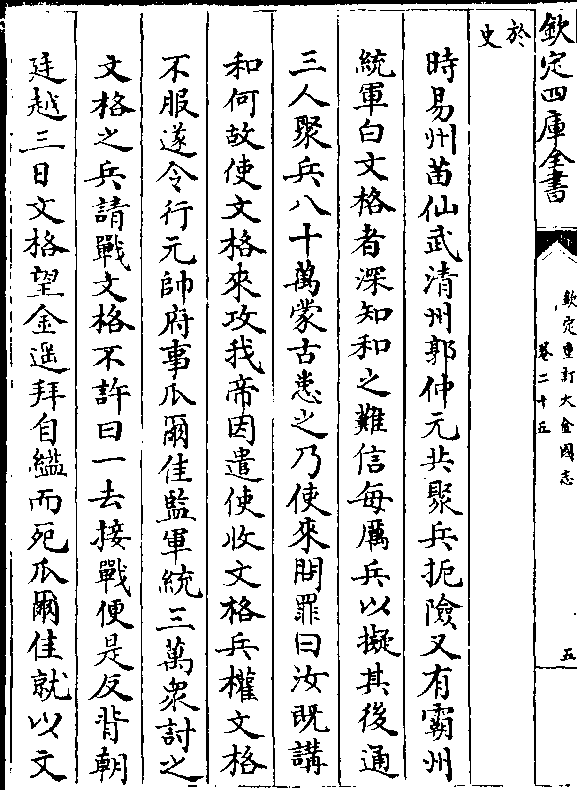 欽定四庫全書
欽定重訂大金國志
卷二十五
五
於史
時易州苗仙武清州郭仲元共聚兵扼險又有霸州
統軍白文格者深知和之難信每厲兵以擬其後通
三人聚兵八十萬蒙古患之乃使來問罪曰汝既講
和何故使文格來攻我帝因遣使收文格兵權文格
不服遂令行元帥府事瓜爾佳監軍統三萬衆討之
文格之兵請戰文格不許曰一去接戰便是反背朝
廷越三日文格望金遥拜自縊而死瓜爾佳就以文